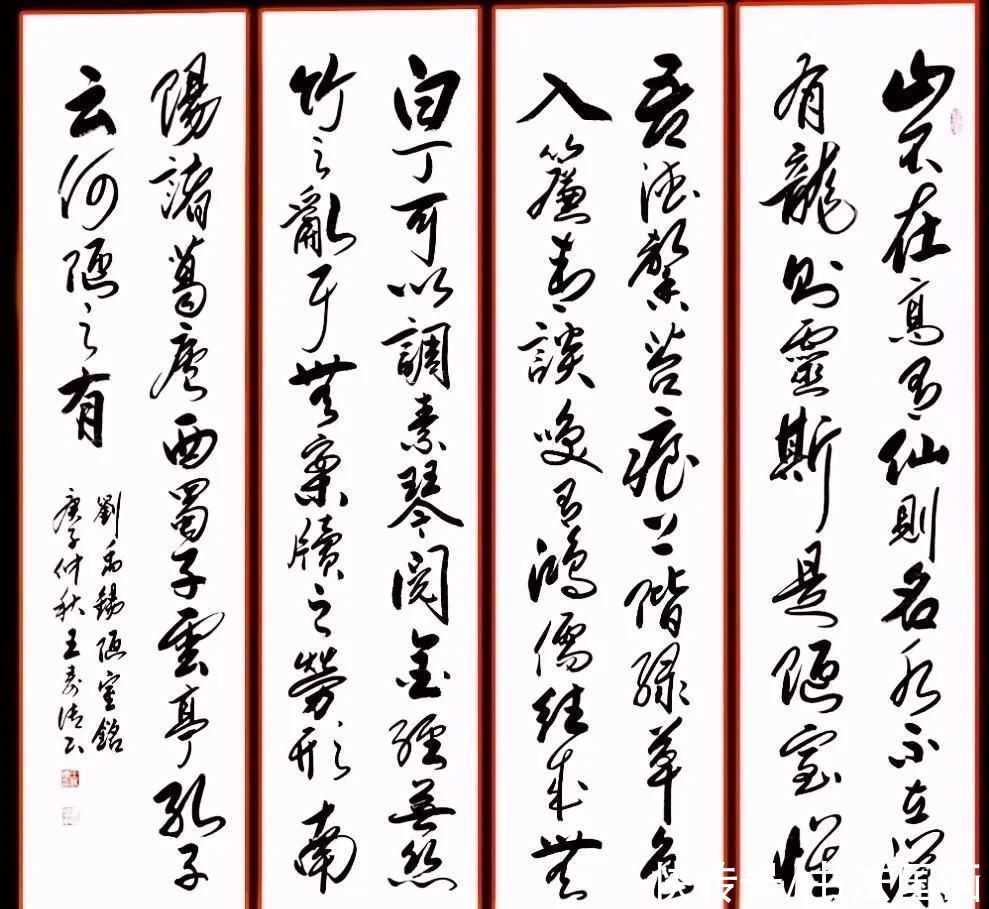 山不在高有仙則名水不在深
有龍則靈斯是陋室惟
吾德馨苔痕上階緑草色
入簾青談咲有鴻儒往來無
白丁可以調素琴閱金經無絲
竹之亂耳無案牘之勞形南
陽諸葛廬西蜀子雲亭孔子
云何陋之有
劉禹錫陋室銘
庚子仲秋王
快传号